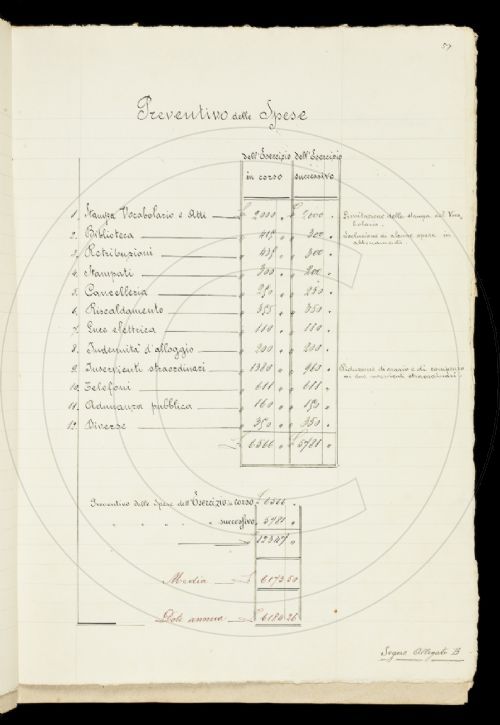 57
Preventivo delle Spese
dell'Esercizio dell'Esercizio
in corso successivo
1. Stampa Vocabolario e Atti £ 2000 „ £ 2000 „ Limitazione della stampa del Voca-
bolario.
2. Biblioteca „ 415 „ „ 300 „ Esclusione di alcune opere in
abbonamento
3. Retribuzioni „ 435 „ „ 300 „
4. Stampati „ 300 „ „ 200 „
5. Cancelleria „ 250 „ „ 250 „
6. Riscaldamento „ 355 „ „ 350 „
7. Luce elettrica „ 110 „ „ 110 „
8. Indennità d'alloggio „ 200 „ „ 200 „
9. Inservienti straordinari „ 1380 „ „ 960 „ Riduzione di orario e di compenso
ai due inservienti straordinari.
10. Telefoni „ 611 „ „ 611 „
11. Adunanza pubblica „ 160 „ „ 150 „
12. Diverse „ 350 „ „ 350 „
£ 6566 „ £ 5781 „
Preventivo delle Spese dell'Esercizio in corso £ 6566 „
„ „ „ „ successivo „ 5781 „
£ 12347 „
Media £ 6173 50
Dote annua £ 6184 26
Segue Allegato B